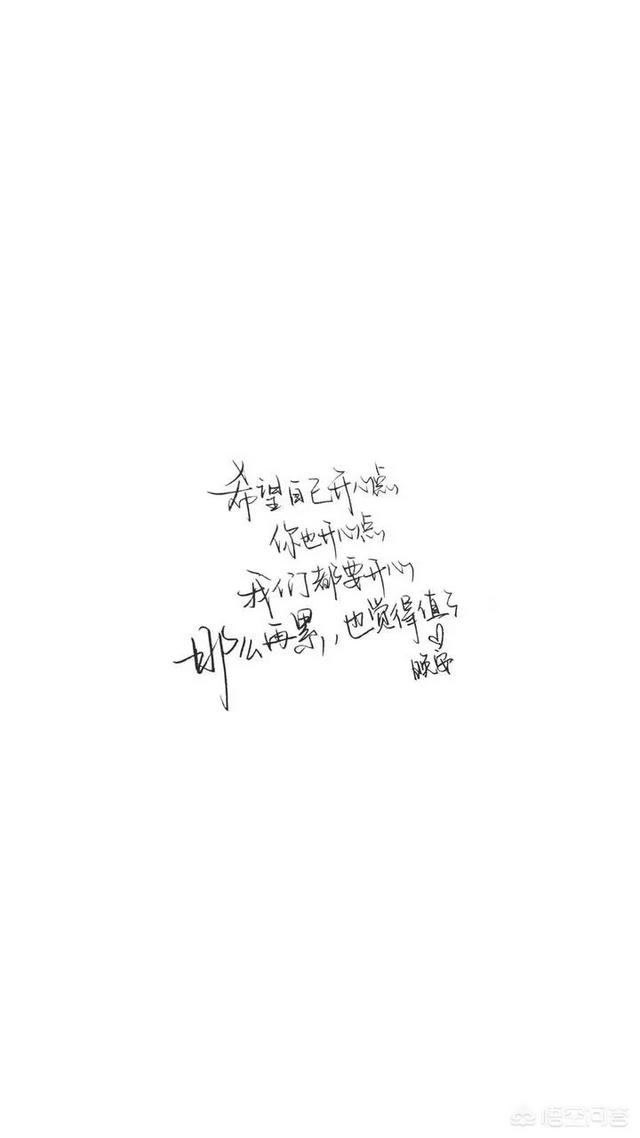 希望自己开心点
你也开心点
我们都要开心
那么再累，也觉得值了
晚安
悟空问答